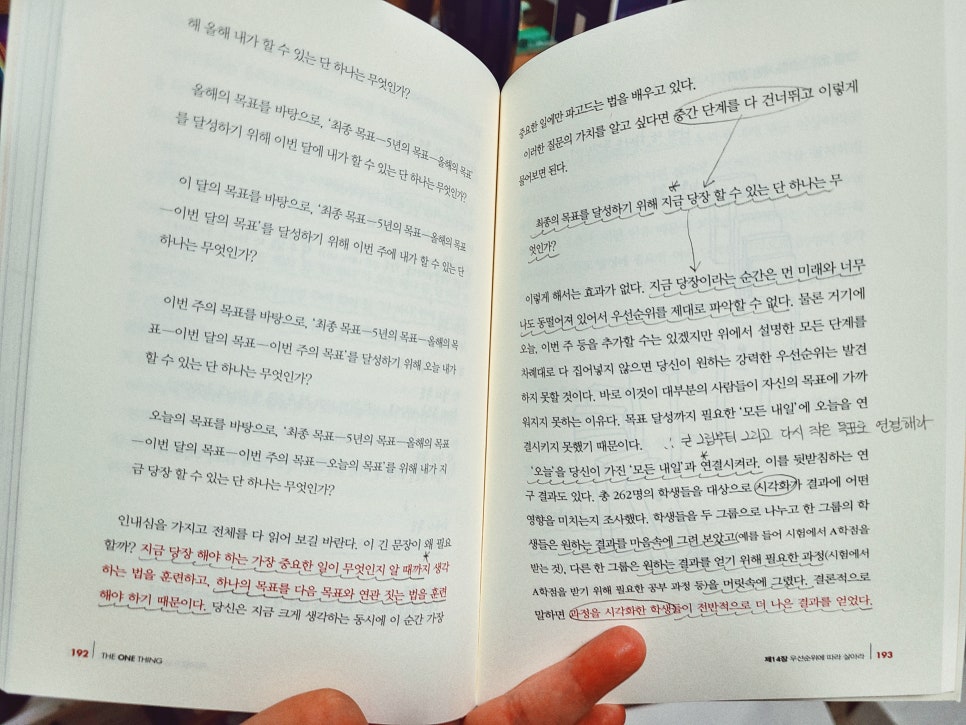 해 올해 내가 할 수 있는 단 하나는 무엇인가?
올해의 목표를 바탕으로, ‘최종 목표—5년의 목표—올해의 목표’
를 달성하기 위해 이번 달에 내가 할 수 있는 단 하나는 무엇인가?
이 달의 목표를 바탕으로, ‘최종 목표—5년의 목표—올해의 목표
—이번 달의 목표’를 달성하기 위해 이번 주에 내가 할 수 있는 단
하나는 무엇인가?
이번 주의 목표를 바탕으로, ‘최종 목표—5년의 목표—올해의 목
표—이번 달의 목표—이번 주의 목표’를 달성하기 위해 오늘 내가
할 수 있는 단 하나는 무엇인가?
오늘의 목표를 바탕으로, ‘최종 목표—5년의 목표—올해의 목표
—이번 달의 목표—이번 주의 목표—오늘의 목표’를 위해 내가 지
금 당장 할 수 있는 단 하나는 무엇인가?
인내심을 가지고 전체를 다 읽어 보길 바란다. 이 긴 문장이 왜 필요
할까? 지금 당장 해야 하는 가장 중요한 일이 무엇인지 알 때까지 생각
하는 법을 훈련하고, 하나의 목표를 다음 목표와 연관 짓는 법을 훈련
해야 하기 때문이다. 당신은 지금 크게 생각하는 동시에 이 순간 가장
192 THE ONE THING
중요한 일에만 파고드는 법을 배우고 있다.
이러한 질문의 가치를 알고 싶다면 중간 단계를 다 건너뛰고 이렇게
물어보면 된다.
최종의 목표를 달성하기 위해 지금 당장 할 수 있는 단 하나는 무
엇인가?
이렇게 해서는 효과가 없다. 지금 당장이라는 순간은 먼 미래와 너무
나도 동떨어져 있어서 우선순위를 제대로 파악할 수 없다. 물론 거기에
오늘, 이번 주 등을 추가할 수는 있겠지만 위에서 설명한 모든 단계를
차례대로 다 집어넣지 않으면 당신이 원하는 강력한 우선순위는 발견
하지 못할 것이다. 바로 이것이 대부분의 사람들이 자신의 목표에 가까
워지지 못하는 이유다. 목표 달성까지 필요한 ‘모든 내일’에 오늘을 연
결시키지 못했기 때문이다. ∴ 큰 그림부터 그리고 다시 작은 목표로 연결해라
‘오늘’을 당신이 가진 ‘모든 내일’과 연결시켜라. 이를 뒷받침하는 연
구 결과도 있다. 총 262명의 학생들을 대상으로 시각화가 결과에 어떤
영향을 미치는지 조사했다. 학생들을 두 그룹으로 나누고 한 그룹의 학
생들은 원하는 결과를 마음속에 그려 보았고(예를 들어 시험에서 A학점을
받는 것), 다른 한 그룹은 원하는 결과를 얻기 위해 필요한 과정(시험에서
A학점을 받기 위해 필요한 공부 과정 등)을 머릿속에 그렸다. 결론적으로
말하면 과정을 시각화한 학생들이 전반적으로 더 나은 결과를 얻었다.
제14장 우선순위에 따라 살아라 193